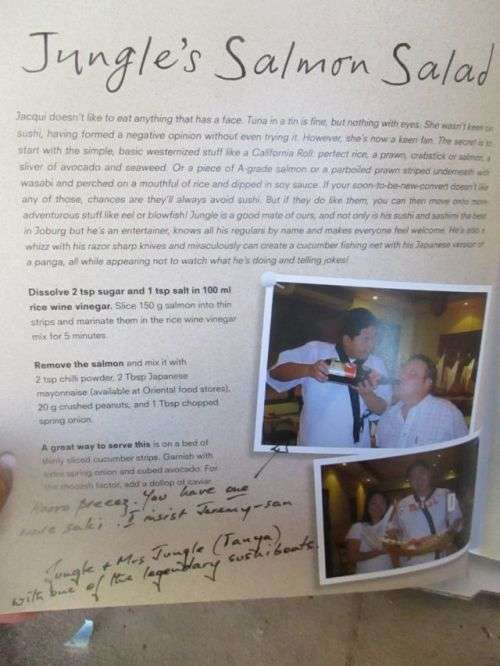 Jungle's Salmon Salad
Jacqui doesn't like to eat anything that has a face. Tuna in a tin is fine, but nothing with eyes. She wasn't keen on
sushi, having formed a negative opinion without even trying it. However, she's now a keen fan. The secret is to
start with the simple, basic westernized stuff like a California Roll: perfect rice, a prawn, crabstick or salmon, a
sliver of avocado and seaweed. Or a piece of A-grade salmon or a parboiled prawn striped underneath with
wasabi and perched on a mouthful of rice and dipped in soy sauce. If your soon-to-be-new-convert doesn't like
any of those, chances are they'll always avoid sushi. But if they do like them, you can then move onto more
adventurous stuff like eel or blowfish! Jungle is a good mate of ours, and not only is his sushi and sashimi the best
in Joburg but he's an entertainer, knows all his regulars by name and makes everyone feel welcome. He's also a
whizz with his razor sharp knives and miraculously can create a cucumber fishing net with his Japanese version of
a panga, all while appearing not to watch what he's doing and telling jokes!
Dissolve 2 tsp sugar and 1 tsp salt in 100 ml
rice wine vinegar. Slice 150 g salmon into thin
strips and marinate them in the rice wine vinegar
mix for 5 minutes.
Remove the salmon and mix it with
2 tsp chilli powder, 2 Tbsp Japanese
mayonnaise (available at Oriental food stores),
20 g crushed peanuts, and 1 Tbsp chopped
spring onion.
A great way to serve this is on a bed of
thinly sliced cucumber strips. Garnish with
extra spring onion and cubed avocado. For
the moolish factor, add a dollop of caviar.
You have one
more saki. I insist Jeremy-san
Jungle + Mrs Jungle (Tanya)
with one of the legendary sushi boats.